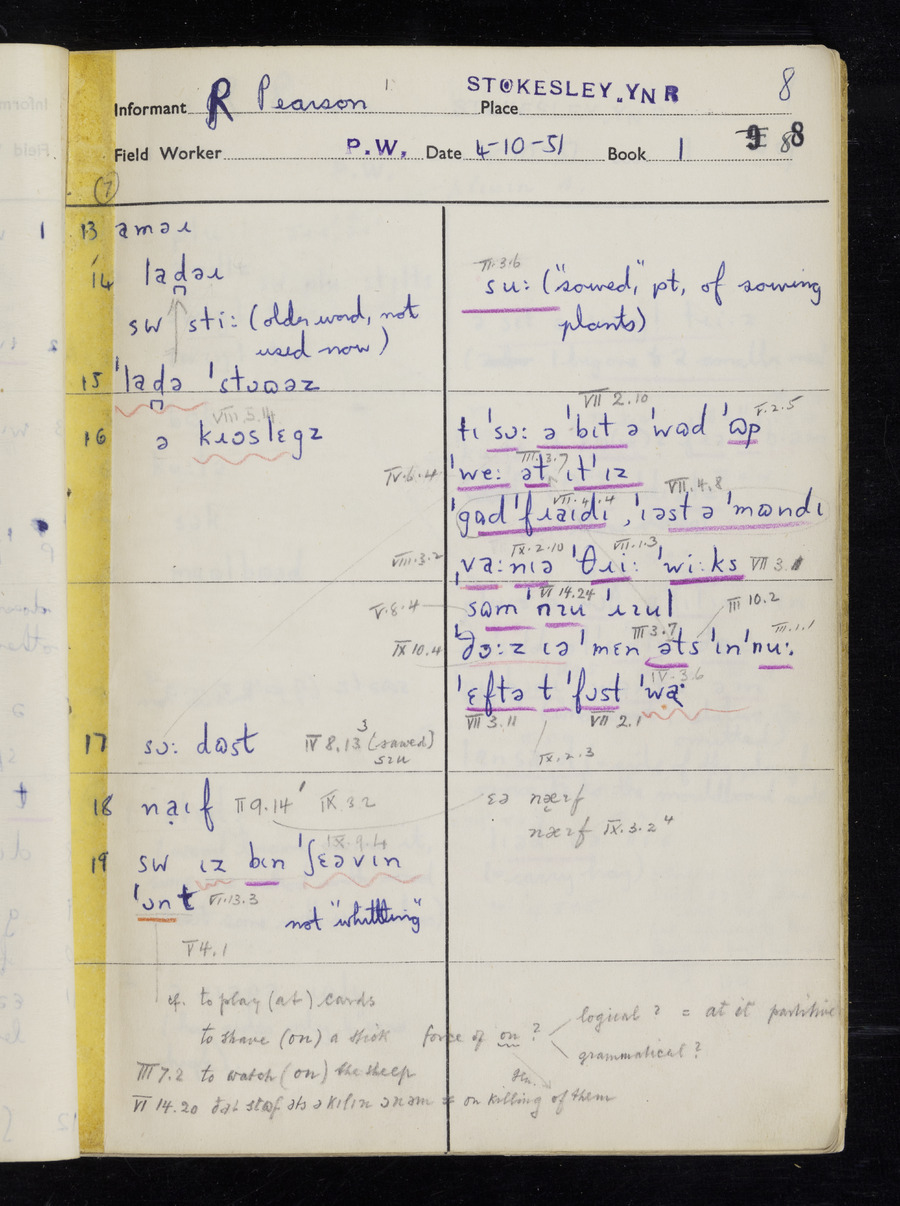 Informant R Pearson
STOKESLEY. Y N R
Place
8
Field Worker P.W. Date 4-10-51 Book 1
9 8
8
(7)
13 əmɜɪ
14 ladəɪ
sw stiː (older word, not
used now)
15 ˈladə ˈstʊɷəz
VIII 5.14
16 ə kɪʊslɛgz
17 sʊː dɷst IV 8.13 3 (sawed)
sɪu
18 naɪf II 9.14 IX 3.2
IX.9.4
19 sw ɪz bɪn ˈʃɛəvɪn
ˈʊnt VI.13.3
not "whittling"
V 4.1
II.3.6
suː ("sowed", pt, of sowing
plants)
VII 2.10
V.2.5
tɪ ˈsʊː ə ˈbɪt ə ˈwɷd ˈɷp
IV.6.4
III.3.7
ˈweː ət ɪt ˈɪz
VII.4.4
VII.4.8
ˈgɑd ˈfɹaɪdɪ, ˈɪəst ə ˈmɷndɪ
VIII.3.2
IX.2.10
VII.1.3
ˌvaːnɪə ˈθɹiː ˈwiːks VII 3.1
VI 14.24
III 10.2
V.8.4
sɷm ˈnɪu ˈɪɪul
III 3.7
III.1.1
IX 10.4
ˈðʊːz ɪə ˈmɛn əts ˈɪn ˈnuː
IV.3.6
ˈɛftə t ˈfʊst ˈwɑ
VII 3.11
VII 2.1
IX.2.3
ɛə næɪf
næɪf IX.3.2 4
cf. to play (at) cards
to shave (on) a stick force of on?
logical? = at it partitive
grammatical?
III 7.2 to watch (on) the sheep
VI 14.20 ðat stɷf əts ə kɪlɪn ənəm = on killing of them